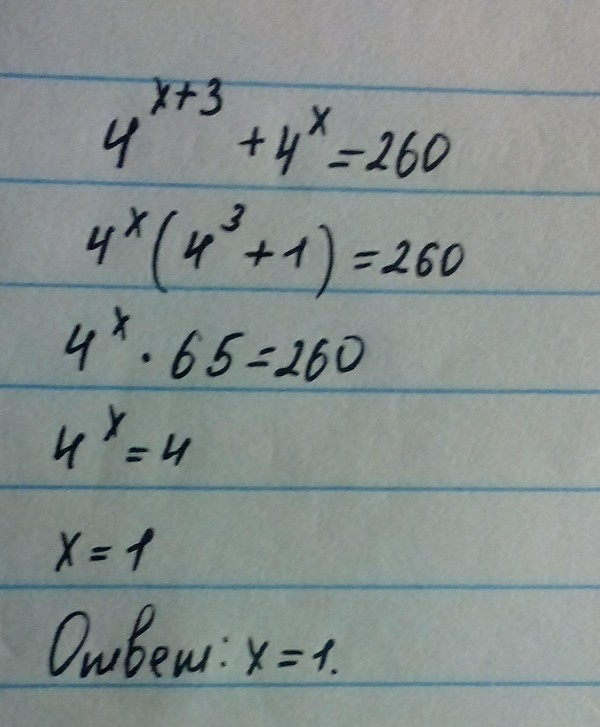 4^{x+3} + 4^x = 260
4^x (4^3 + 1) = 260
4^x · 65 = 260
4^x = 4
x = 1
Ответ: x = 1.